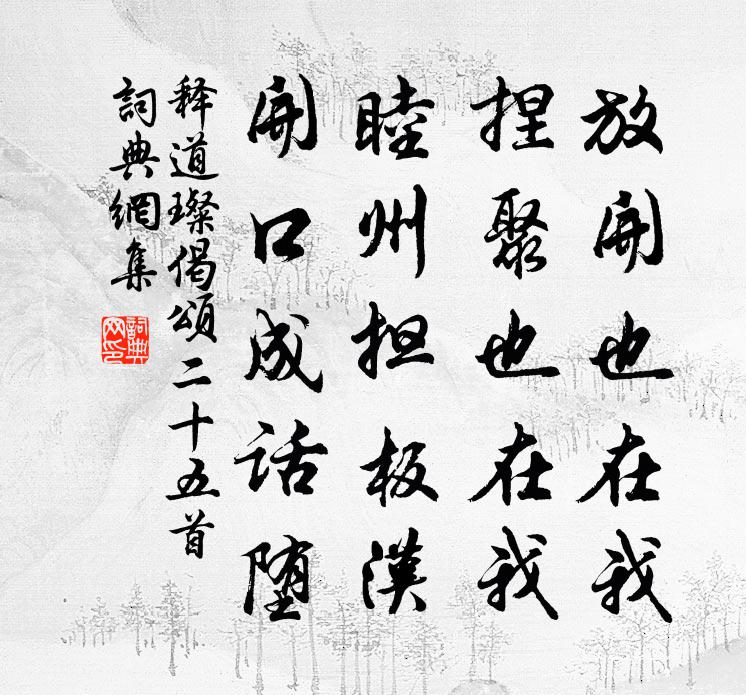 放開也在我
捏聚也在我
睦州担板漢
開口成話堕
释道璨偈頌二十五首
詞典網集
詞典网印